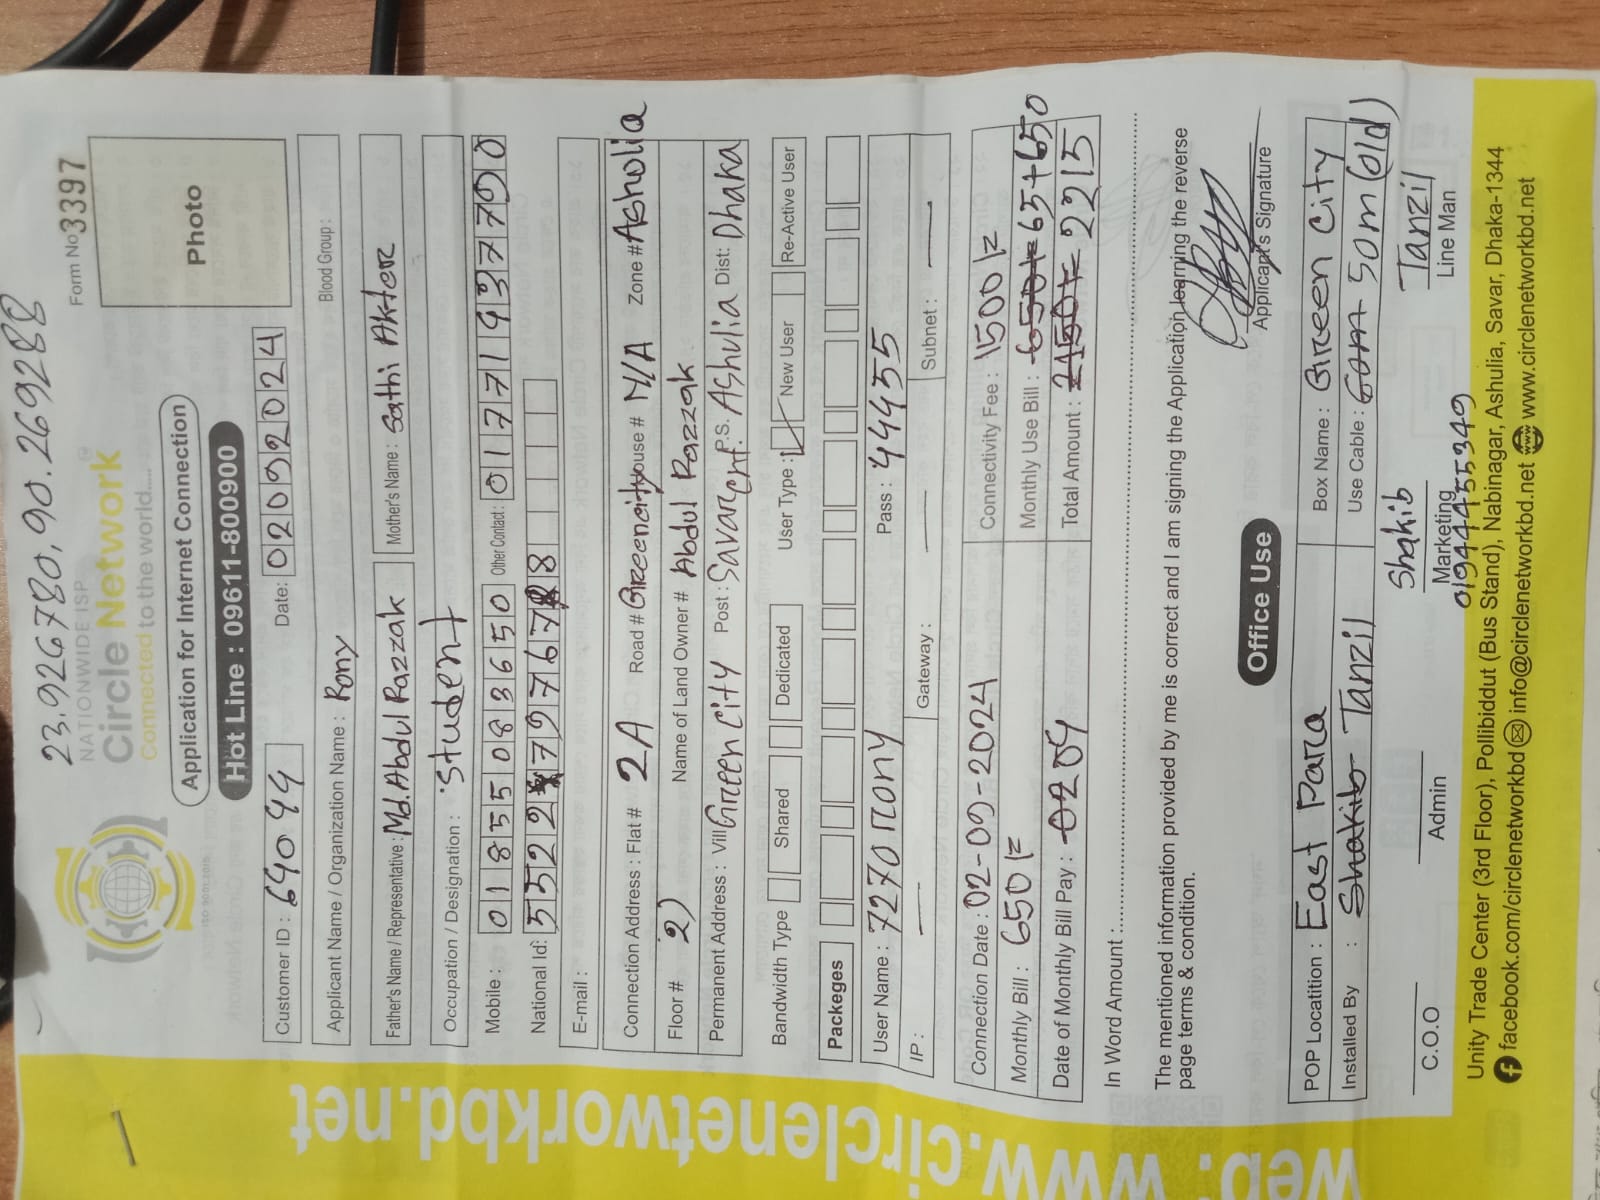 23.926780, 90.269288
NATIONWIDE ISP
Circle Network
Connected to the world.....
Form No 3397
Application for Internet Connection
Hot Line : 09611-800900
Photo
Customer ID : 64094 Date: 02092024
Applicant Name / Organization Name : Rony Blood Group :
Father's Name / Representative : Md. Abdul Razzak Mother's Name : Sathi Akter
Occupation / Designation : Student
Mobile : 01855083650 Other Contact: 01771937790
National Id:
E-mail :
Connection Address : Flat # 2A Road # Greencity House # N/A Zone # Asholia
Floor # 2) Name of Land Owner # Abdul Razzak
Permanent Address : Vill Green City Post : Savar Cnt. P.S. Ashulia Dist: Dhaka
Bandwidth Type Shared Dedicated User Type : New User Re-Active User
Packeges
User Name : 7270rony Pass : 44455
IP : — Gateway : — Subnet : —
Connection Date : 02-09-2024 Connectivity Fee : 1500/=
Monthly Bill : 650/= Monthly Use Bill : 650/= 65+650
Date of Monthly Bill Pay : 02 09 Total Amount : 2150/= 2215
In Word Amount :
The mentioned information provided by me is correct and I am signing the Application learning the reverse
page terms & condition.
Applicant's Signature
Office Use
POP Locatition : East Para Box Name : Green City
Installed By : Shakib Tanzil Use Cable : 50m (old)
Shakib Tanzil
C.O.O Admin Marketing Line Man
01944455349
Unity Trade Center (3rd Floor), Pollibiddut (Bus Stand), Nabinagar, Ashulia, Savar, Dhaka-1344
facebook.com/circlenetworkbd info@circlenetworkbd.net www.circlenetworkbd.net
web: www.circlenetworkbd.net